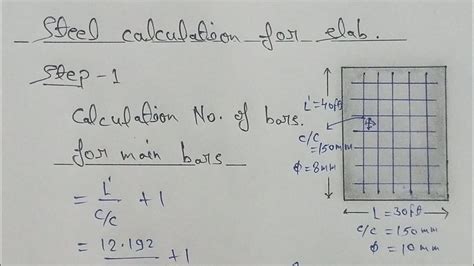 Steel calculation for slab.
Step-1
Calculation No. of bars.
for main bars
= L' / c/c + 1
= 12.192 / +1
L' = 40ft
c/c
= 150mm
Φ = 8mm
L = 30ft
c/c = 150 mm
Φ = 10mm